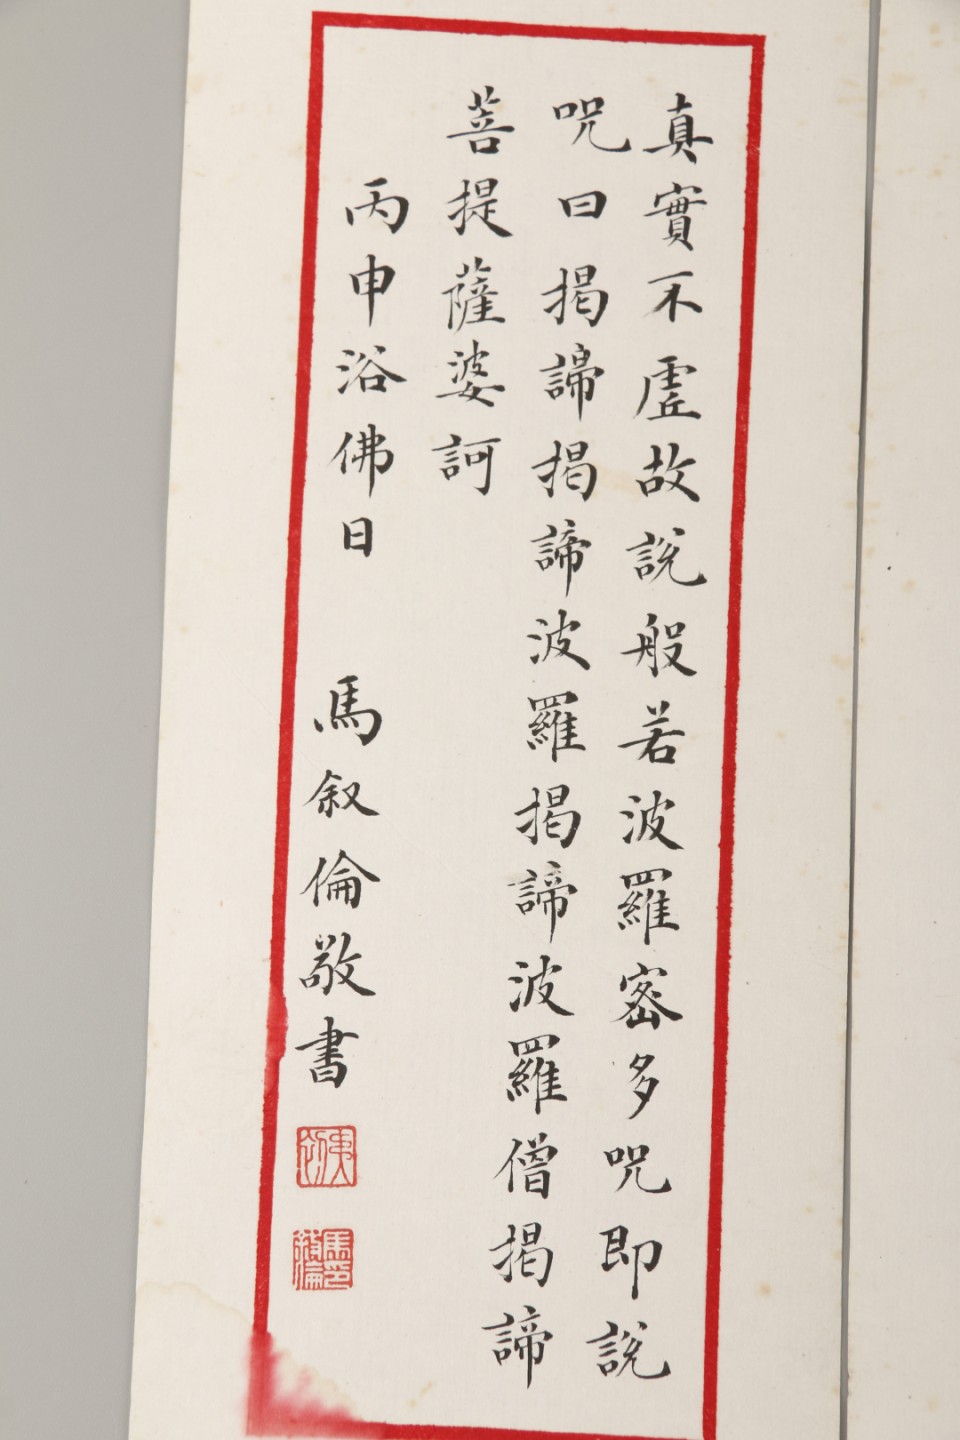 真實不虛故說般若波羅密多咒即說
咒曰揭諦揭諦波羅揭諦波羅僧揭諦
菩提薩婆訶
丙申浴佛日 馬叙倫敬書
馬叙倫印